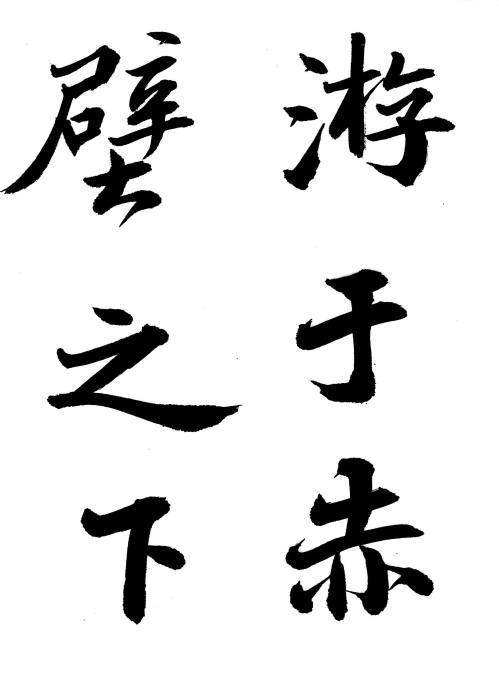 游于赤
壁之下